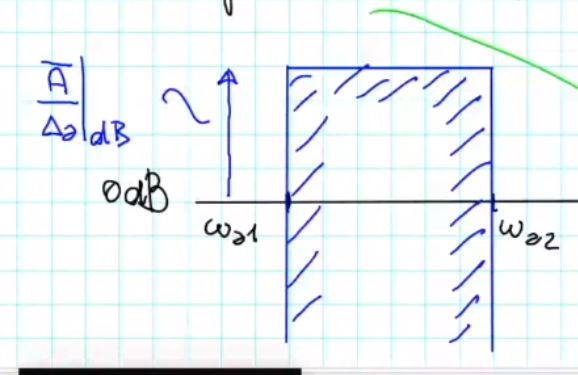 Ā
Δa|dB
0dB
ωa1
ωa2